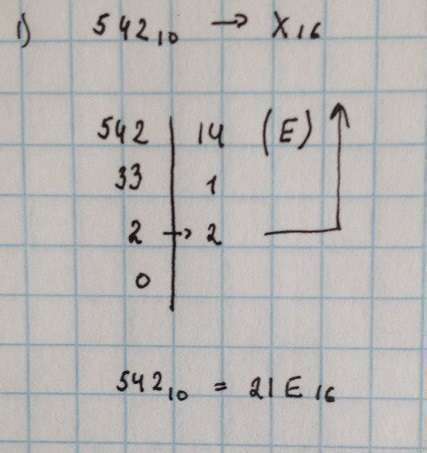 1) 542₁₀ → X₁₆
542 | 14 (E)
33 | 1
2 → 2
0
542₁₀ = 21E₁₆